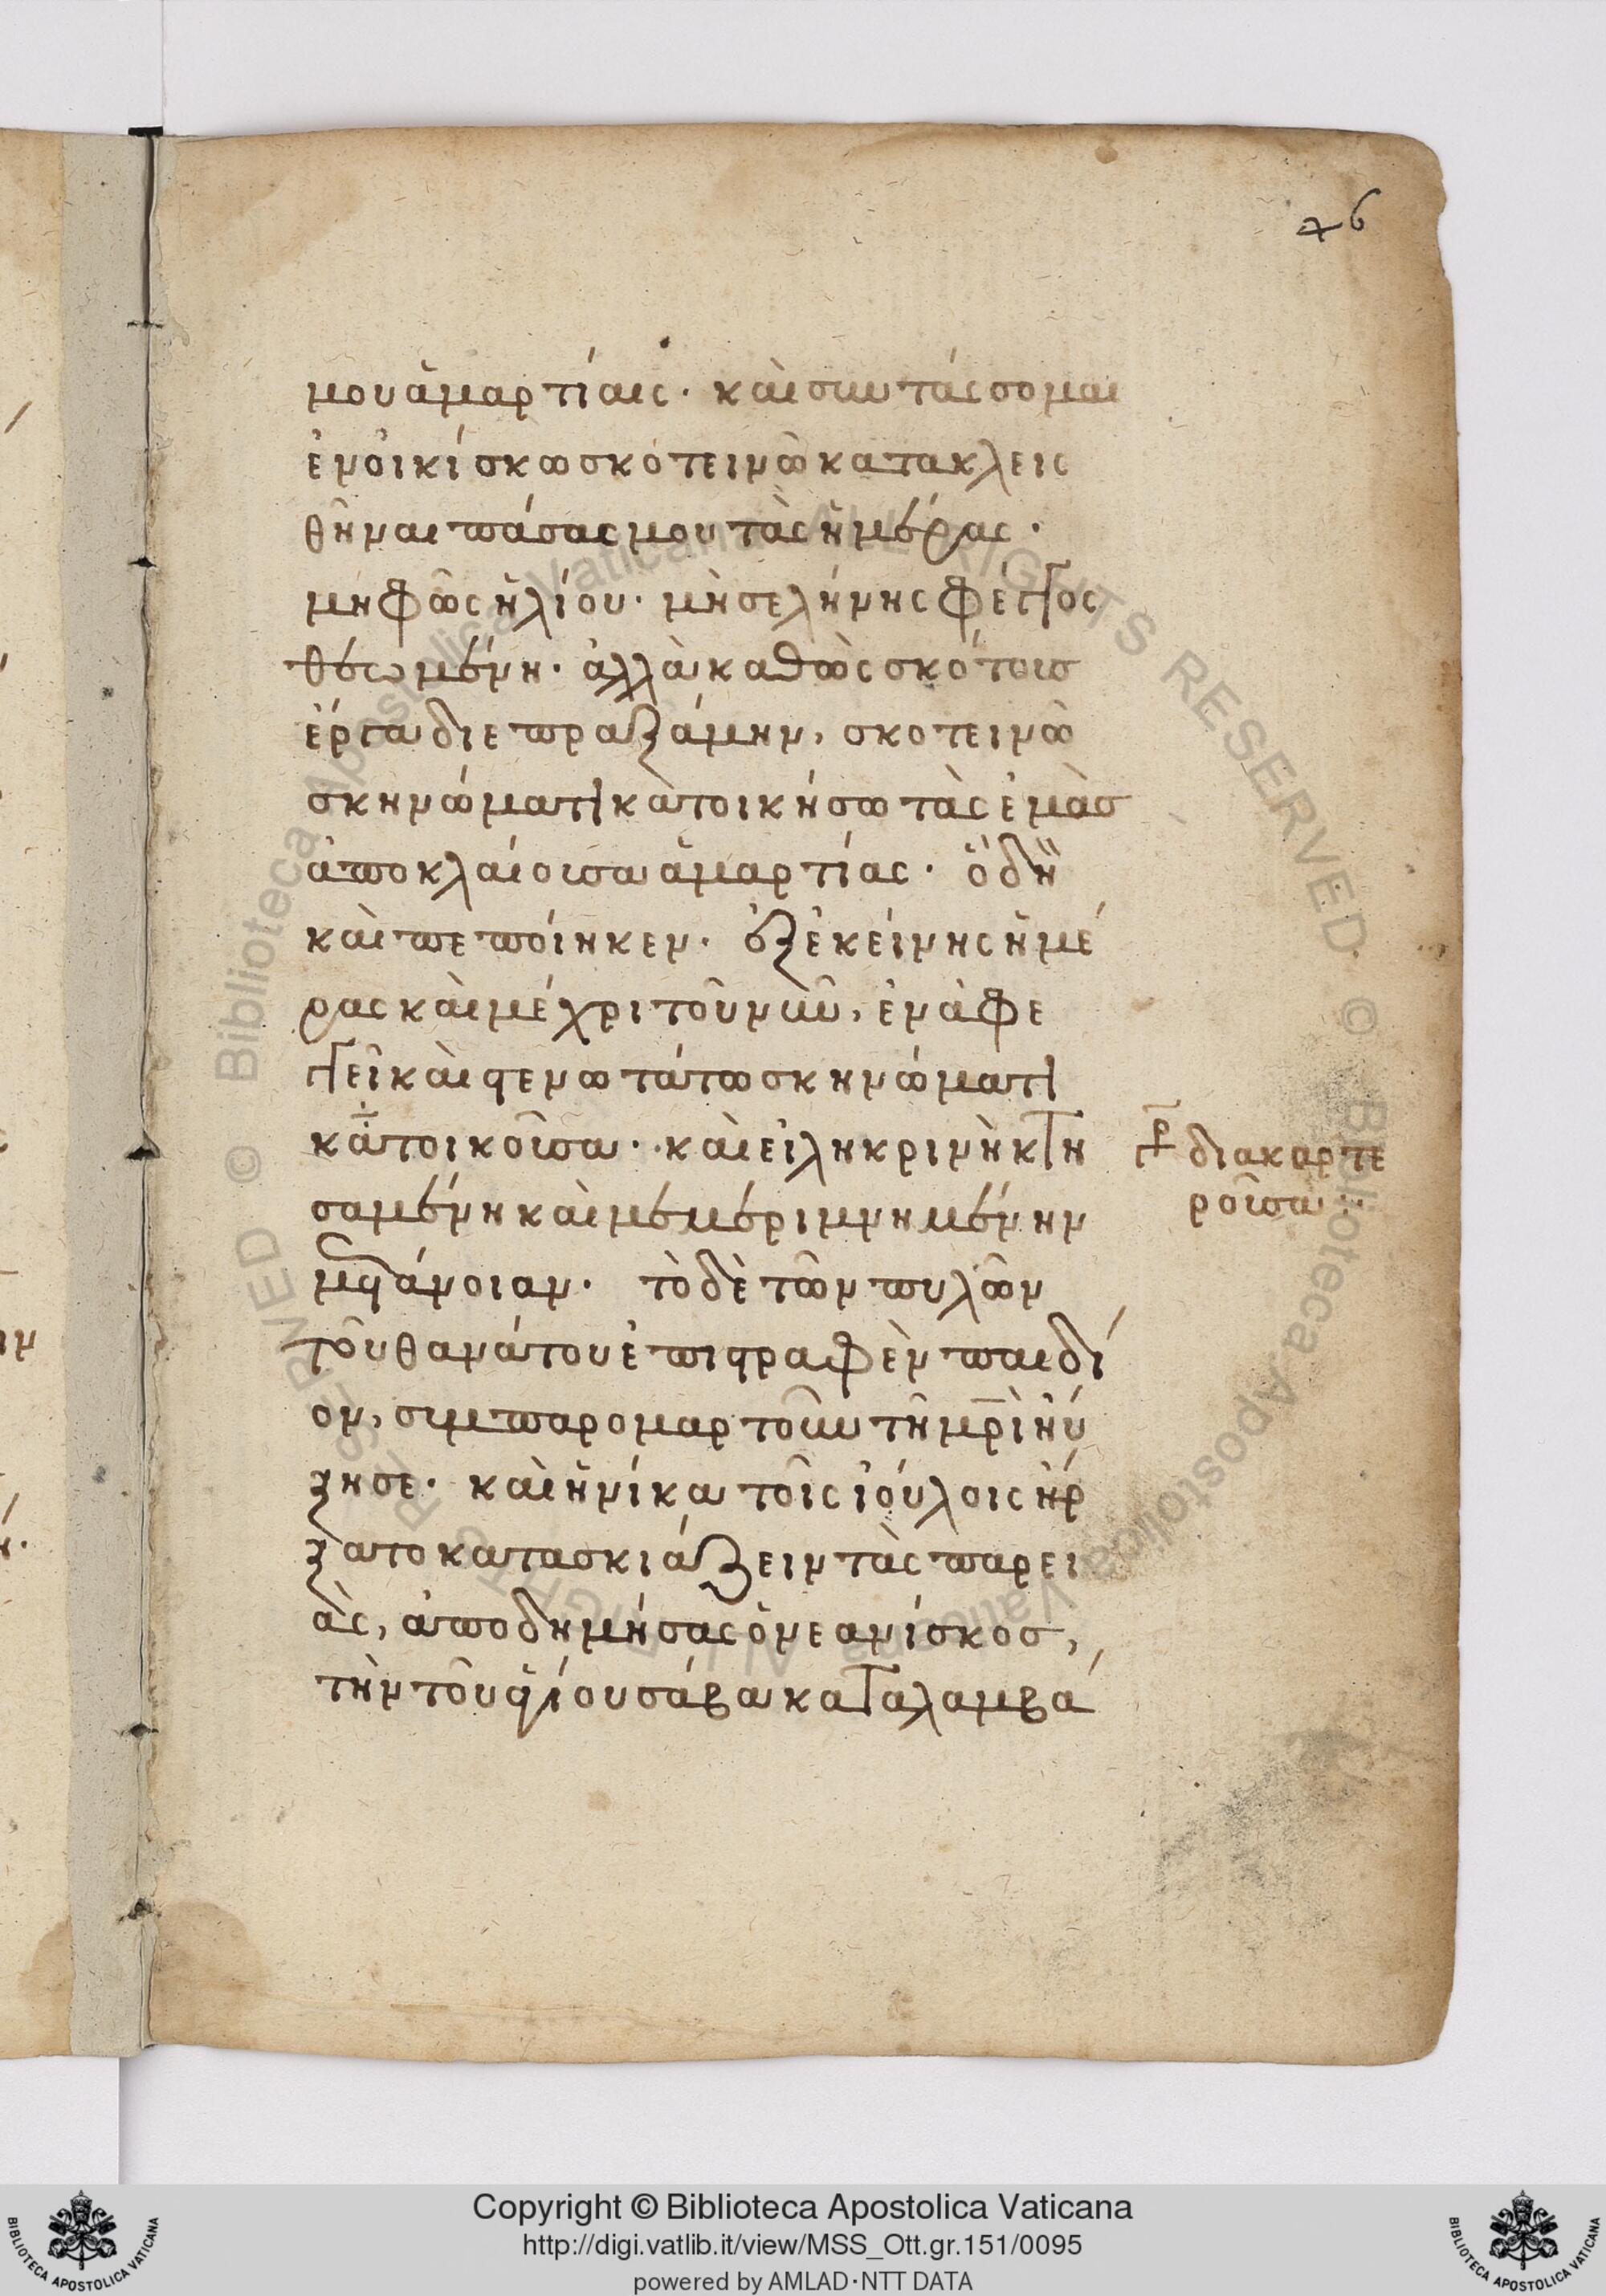 46
μου ἁμαρτίαις· καὶ συντάσσομαι
ἐν οἰκίσκω σκοτεινῶ κατακλεις
θῆναι πάσας μου τὰς ἡμέρας·
μὴ φῶς ἡλίου· μὴ σελήνης φέγγος
θεωμένη· ἀλλὰ καθὼς σκότους
ἔργα διεπραξάμην, σκοτεινῶ
σκηνώματι κατοικήσω τὰς ἐμὰσ
ἀποκλαίουσα ἁμαρτίας· ὃ δὴ
καὶ πεποίηκεν· ἐξ ἐκείνης ἡμέ
ρας καὶ μέχρι τοῦ νῦν, ἐν ἀφε
γγεῖ καὶ γενωτάτω σκηνώματι
κατοικοῦσα· καὶ εἰληκρινῆ κτη
σαμένη καὶ μεμεριμνημένην
μετάνοιαν· τὸ δὲ τῶν πυλῶν
τοῦ θανάτου ἐπιγραφὲν παιδί
ον, συμπαρομαρτοῦν τῆ μρὶ ηὔ
ξησε· καὶ ἡνίκα τοῖς ἰούλοις ἤρ
ξατο κατασκιάζειν τὰς παρει
ὰς, ἀποδημήσας ὁ νεανίσκοσ,
τὴν τοῦ ἁγίου σάβα καταλαμβά
γρ διακαρτε
ροῦσα:
Copyright © Biblioteca Apostolica Vaticana
http://digi.vatlib.it/view/MSS_Ott.gr.151/0095
powered by AMLAD·NTT DATA
BIBLIOTECA APOSTOLICA VATICANA
BIBLIOTECA APOSTOLICA VATICANA